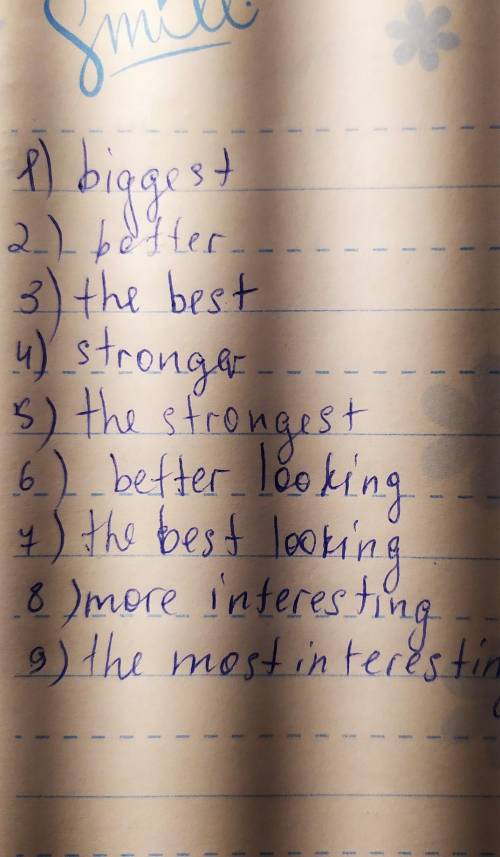 Smile
1) biggest
2) better
3) the best
4) stronger
5) the strongest
6) better looking
7) the best looking
8) more interesting
9) the most interesting